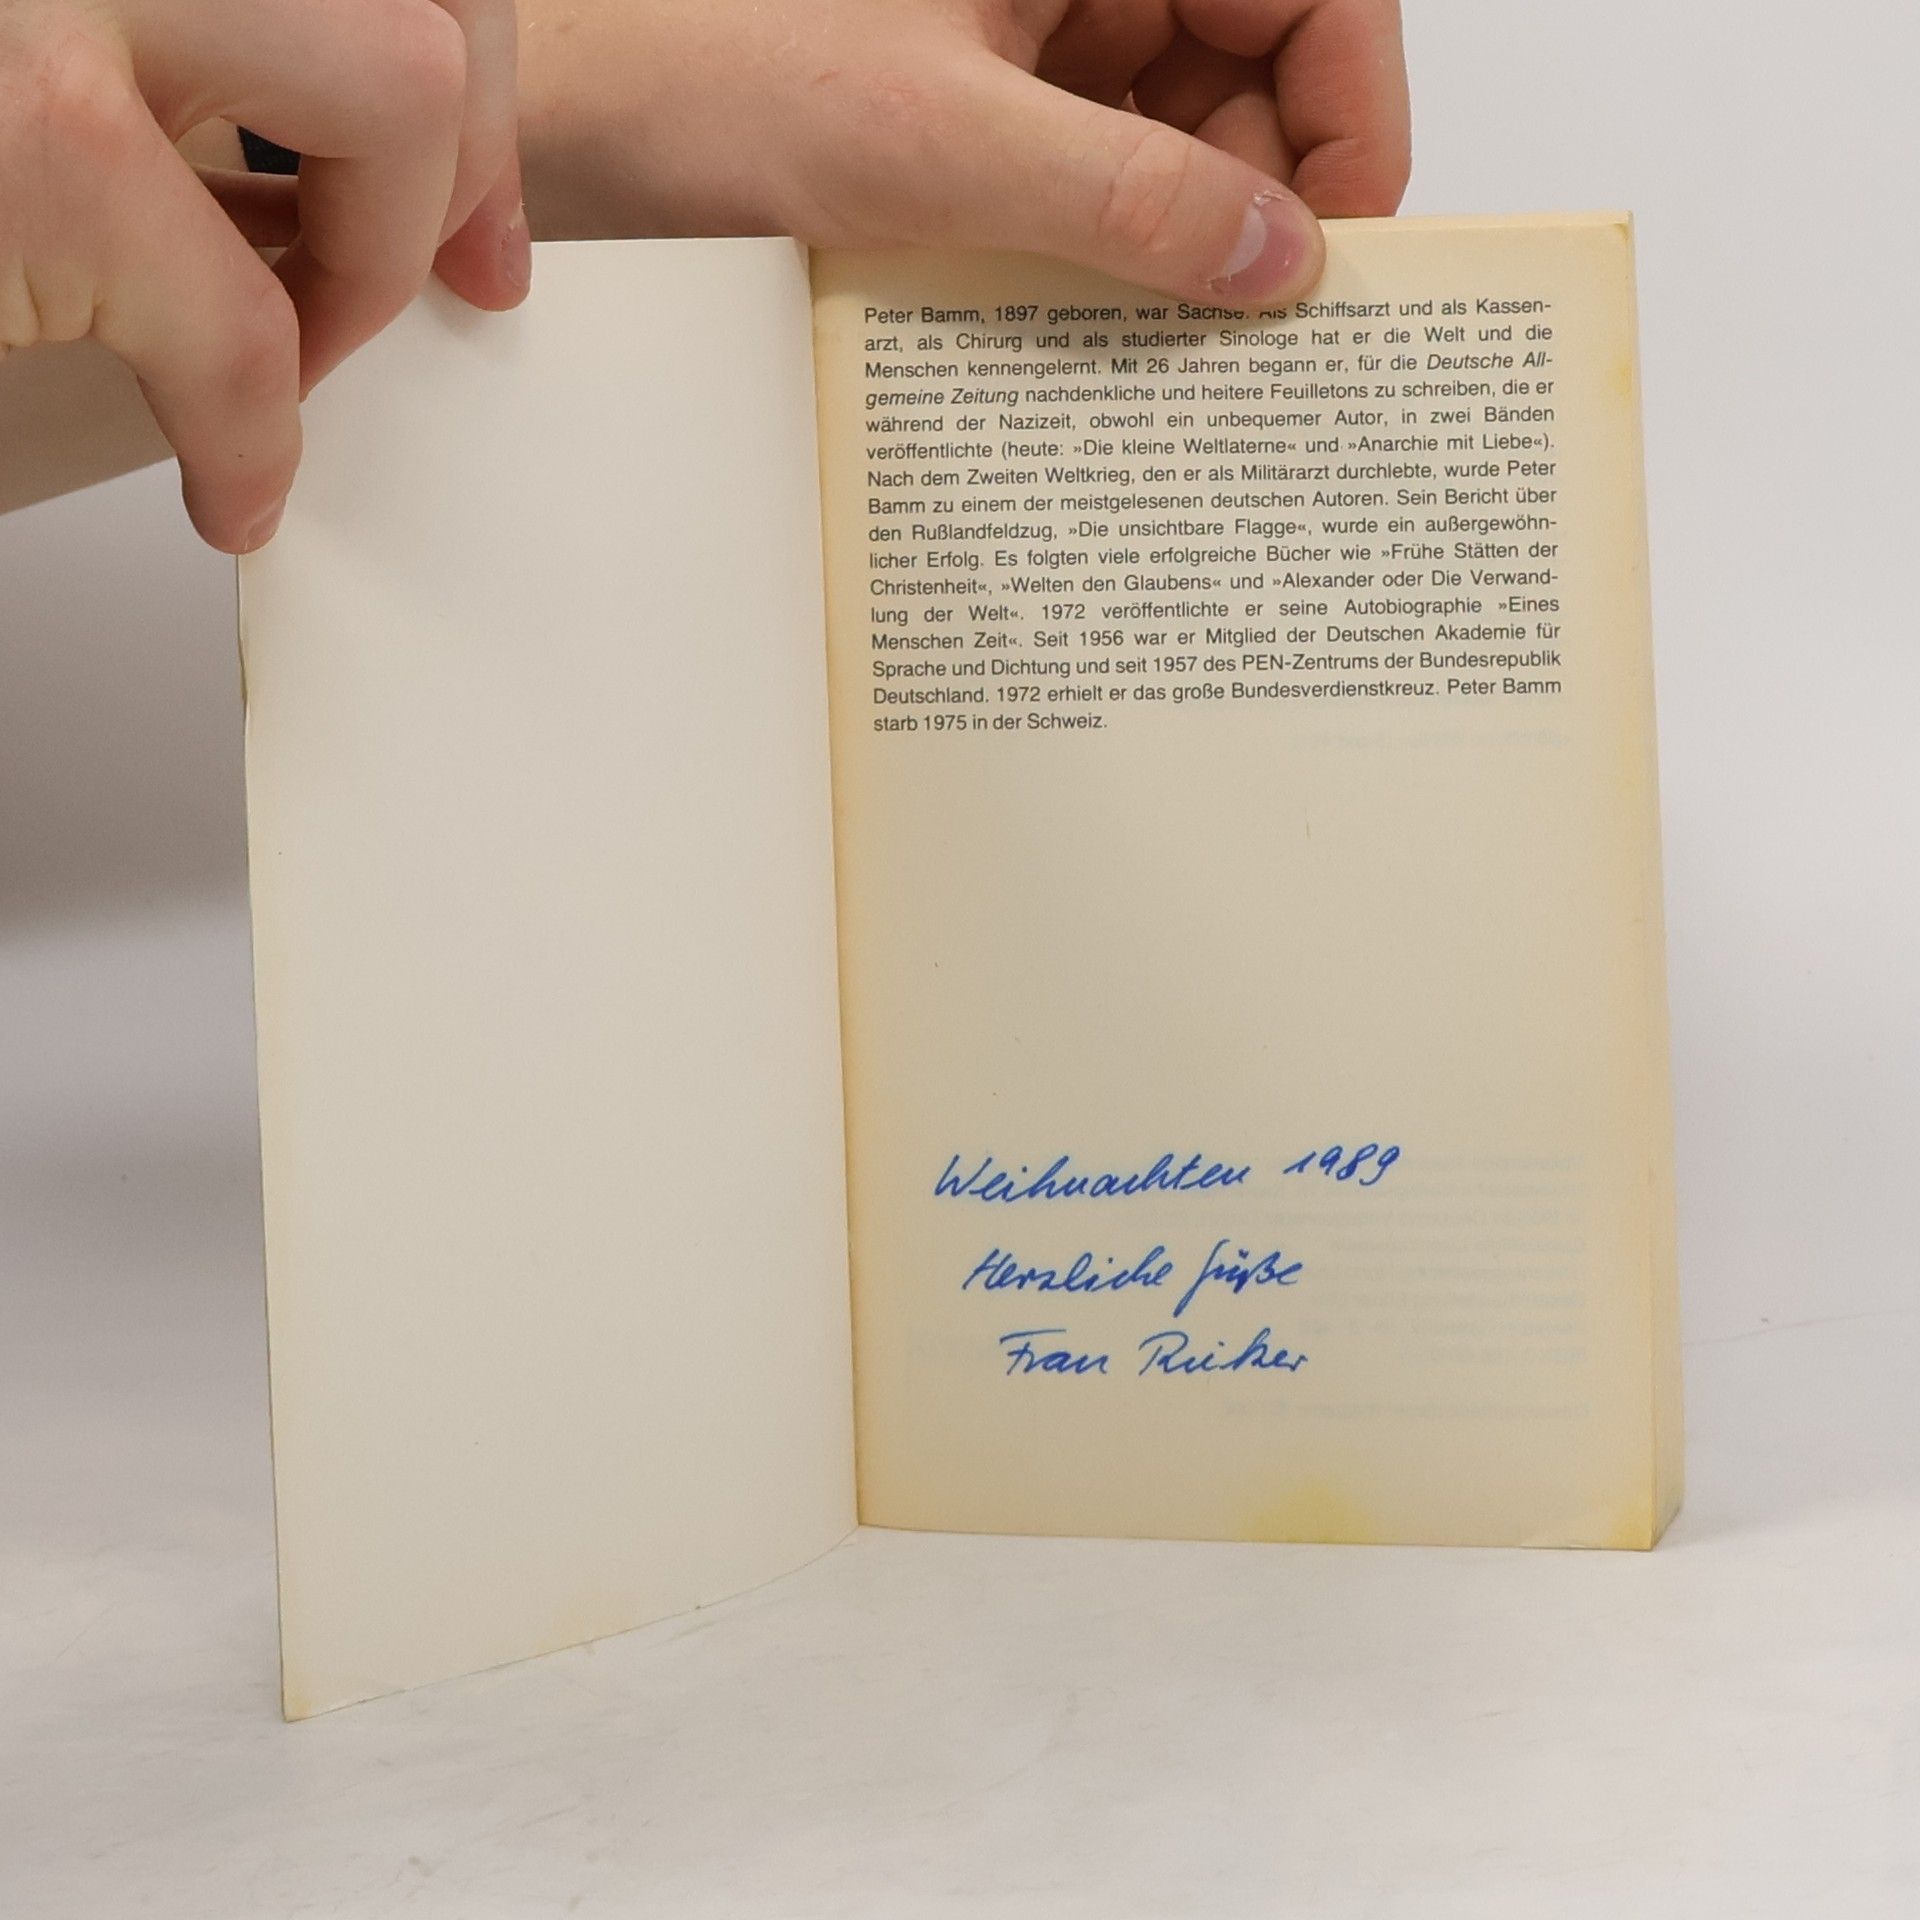 Peter Bamm, 1897 geboren, war Sachse. Als Schiffsarzt und als Kassen-
arzt, als Chirurg und als studierter Sinologe hat er die Welt und die
Menschen kennengelernt. Mit 26 Jahren begann er, für die Deutsche All-
gemeine Zeitung nachdenkliche und heitere Feuilletons zu schreiben, die er
während der Nazizeit, obwohl ein unbequemer Autor, in zwei Bänden
veröffentlichte (heute: »Die kleine Weltlaterne« und »Anarchie mit Liebe«).
Nach dem Zweiten Weltkrieg, den er als Militärarzt durchlebte, wurde Peter
Bamm zu einem der meistgelesenen deutschen Autoren. Sein Bericht über
den Rußlandfeldzug, »Die unsichtbare Flagge«, wurde ein außergewöhn-
licher Erfolg. Es folgten viele erfolgreiche Bücher wie »Frühe Stätten der
Christenheit«, »Welten den Glaubens« und »Alexander oder Die Verwand-
lung der Welt«. 1972 veröffentlichte er seine Autobiographie »Eines
Menschen Zeit«. Seit 1956 war er Mitglied der Deutschen Akademie für
Sprache und Dichtung und seit 1957 des PEN-Zentrums der Bundesrepublik
Deutschland. 1972 erhielt er das große Bundesverdienstkreuz. Peter Bamm
starb 1975 in der Schweiz.
Weihnachten 1989
Herzliche Grüße
Frau